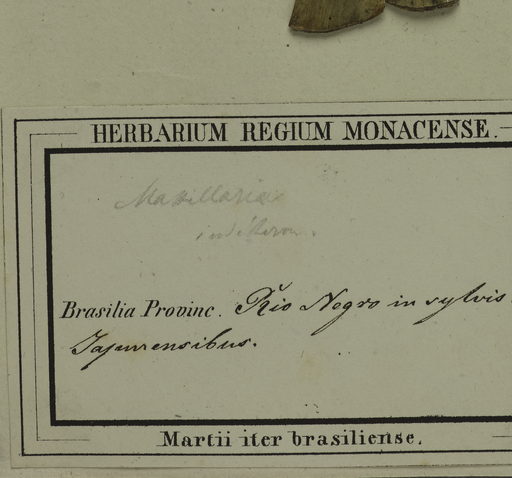 HERBARIUM REGIUM MONACENSE.
Maxillaria
indeterm.
Brasilia Provinc. Rio Negro in sylvis
Japurensibus.
Martii iter brasiliense.